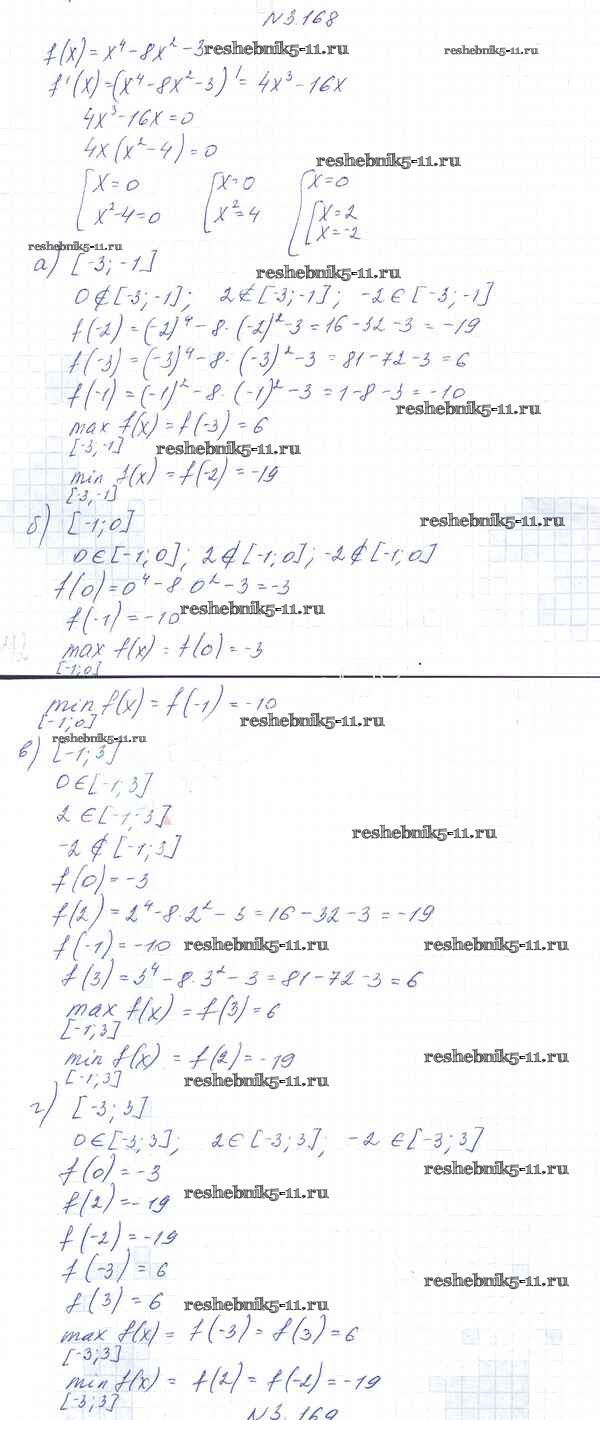 N3.168
f(x) = x⁴ - 8x² - 3 reshebnik5-11.ru reshebnik5-11.ru
f'(x) = (x⁴ - 8x² - 3)' = 4x³ - 16x
4x³ - 16x = 0
4x(x² - 4) = 0
reshebnik5-11.ru
[x = 0 [x = 0 [x = 0
x² - 4 = 0 x² = 4 [x = 2
x = -2
reshebnik5-11.ru
а) [-3; -1]
reshebnik5-11.ru
0 ∉ [-3; -1]; 2 ∉ [-3; -1]; -2 ∈ [-3; -1]
f(-2) = (-2)⁴ - 8 · (-2)² - 3 = 16 - 32 - 3 = -19
f(-3) = (-3)⁴ - 8 · (-3)² - 3 = 81 - 72 - 3 = 6
f(-1) = (-1)² - 8 · (-1)² - 3 = 1 - 8 - 3 = -10
reshebnik5-11.ru
max f(x) = f(-3) = 6
[-3; -1] reshebnik5-11.ru
min f(x) = f(-2) = -19
[-3; -1]
б) [-1; 0] reshebnik5-11.ru
0 ∈ [-1; 0]; 2 ∉ [-1; 0]; -2 ∉ [-1; 0]
f(0) = 0⁴ - 8 0² - 3 = -3
f(-1) = -10 reshebnik5-11.ru
max f(x) = f(0) = -3
[-1; 0]
min f(x) = f(-1) = -10
[-1; 0] reshebnik5-11.ru
reshebnik5-11.ru
в) [-1; 3]
0 ∈ [-1; 3]
2 ∈ [-1; 3]
reshebnik5-11.ru
-2 ∉ [-1; 3]
f(0) = -3
f(2) = 2⁴ - 8 · 2² - 3 = 16 - 32 - 3 = -19
f(-1) = -10 reshebnik5-11.ru reshebnik5-11.ru
f(3) = 3⁴ - 8 · 3² - 3 = 81 - 72 - 3 = 6
max f(x) = f(3) = 6
[-1; 3]
min f(x) = f(2) = -19 reshebnik5-11.ru
[-1; 3] reshebnik5-11.ru
г) [-3; 3]
0 ∈ [-3; 3]; 2 ∈ [-3; 3]; -2 ∈ [-3; 3]
f(0) = -3 reshebnik5-11.ru
f(2) = -19 reshebnik5-11.ru
f(-2) = -19
f(-3) = 6
reshebnik5-11.ru
f(3) = 6 reshebnik5-11.ru
max f(x) = f(-3) = f(3) = 6
[-3; 3]
min f(x) = f(2) = f(-2) = -19
[-3; 3]
N3.169